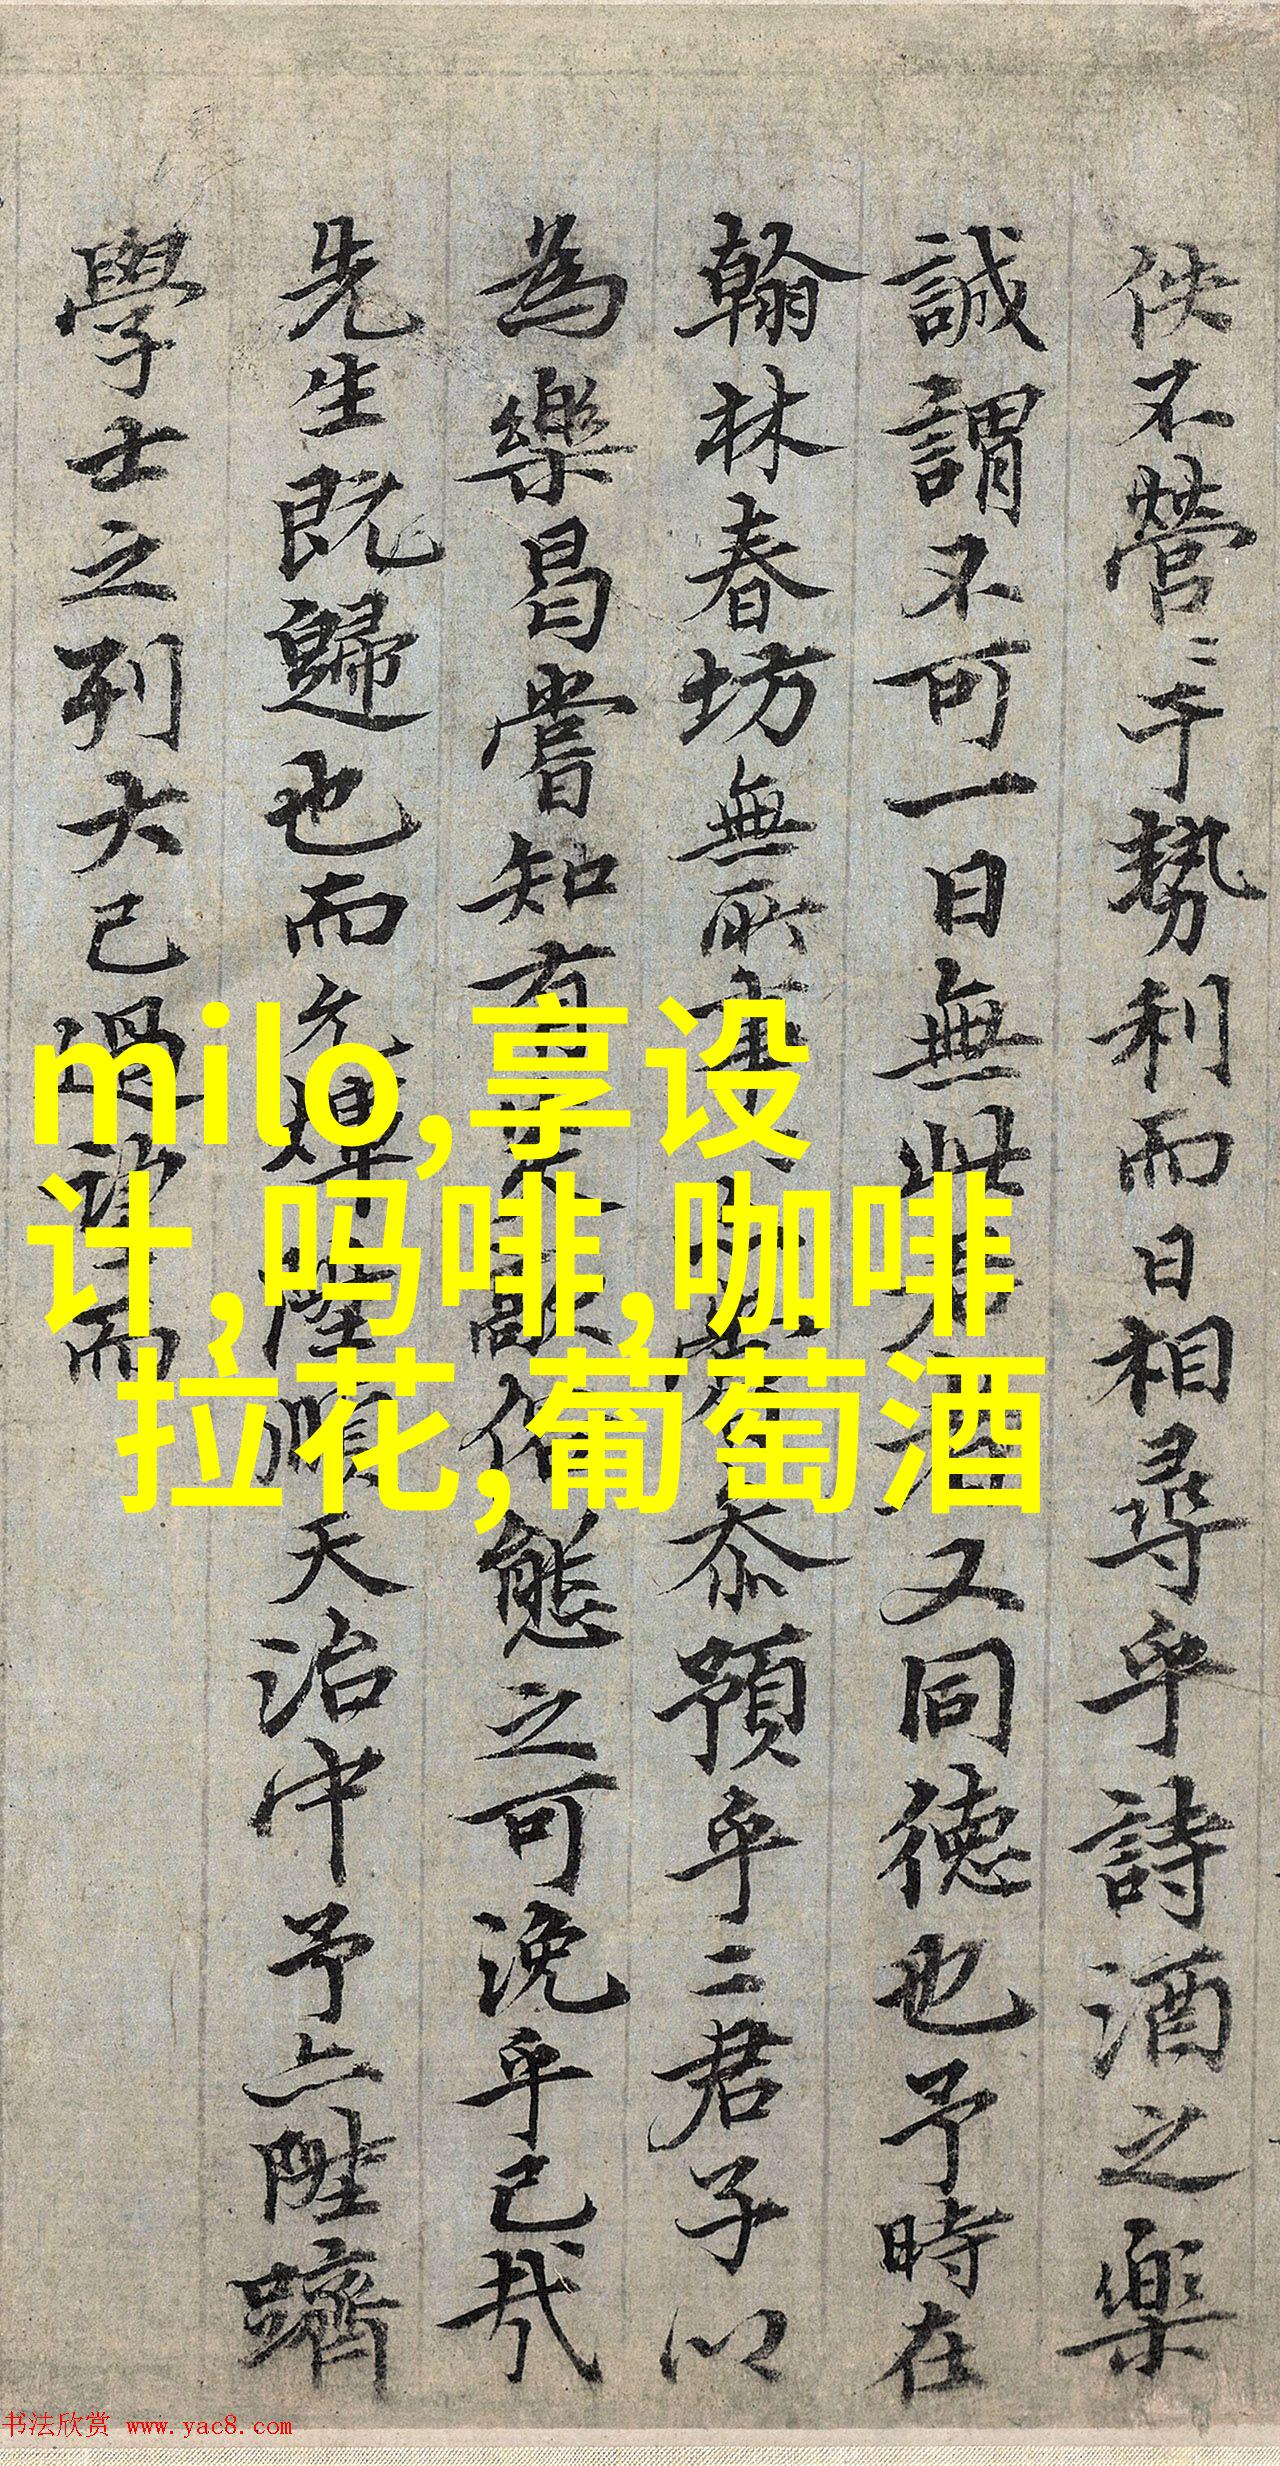 佚不營二於勢利而日相尋乎詩酒之樂
誠謂不可一日無此君者又同德也予時在
翰林春坊無所事泰預乎二君子以
為樂曷嘗知有態之可浼乎已哉
先生既歸也而天治中予亦陞躋
學士之列大已過望而
milo,享设
计,吗啡,咖啡
拉花,葡萄酒
书法欣赏 www.yac8.com